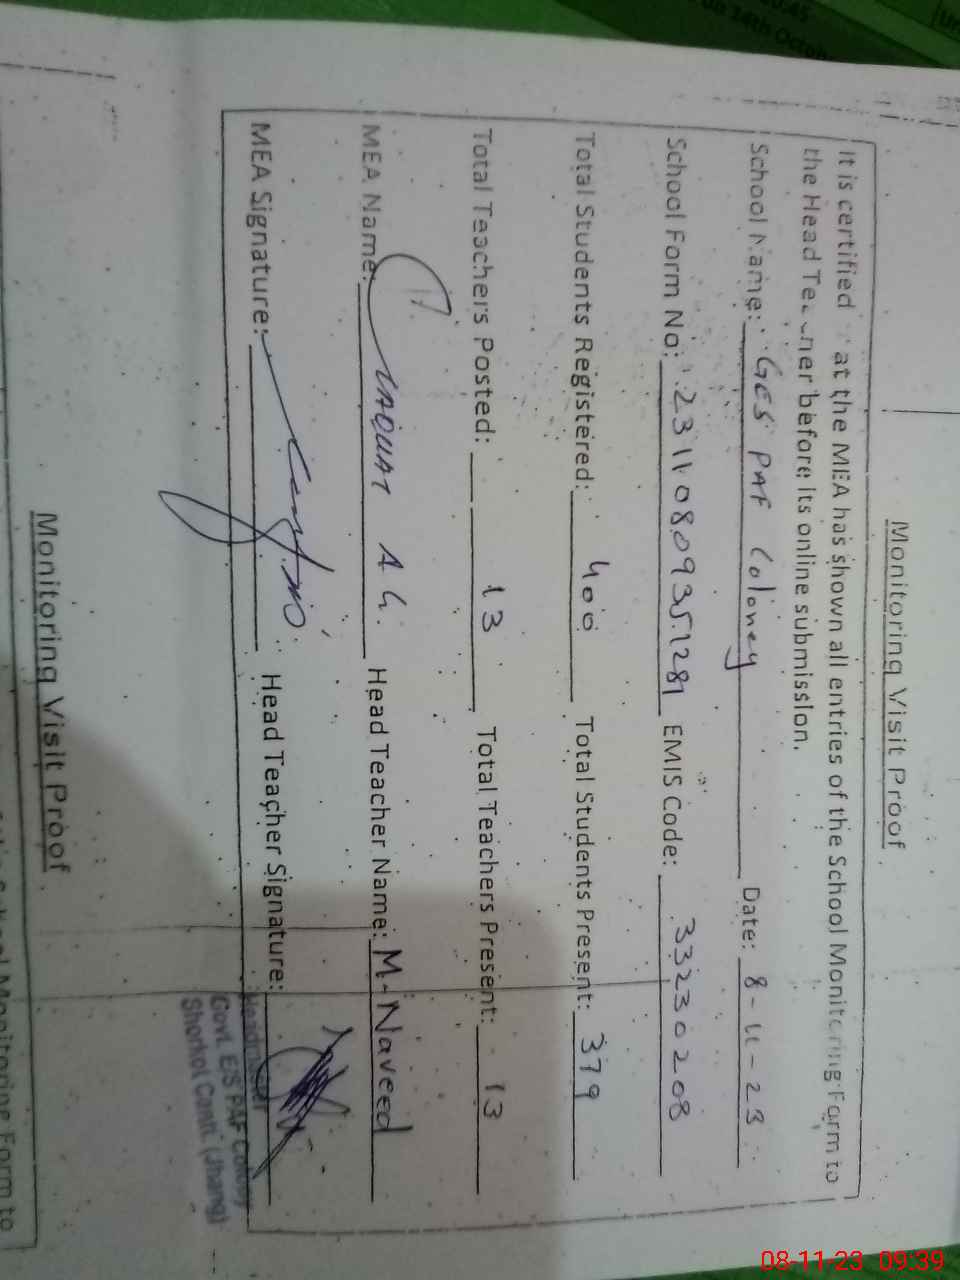 Monitoring Visit Proof
It is certified at the MEA has shown all entries of the School Monitoring Form to
the Head Te ner before its online submission.
School Name: GES PAF Coloney Date: 8-11-23
School Form No: 23110809351281 EMIS Code: 33230208
Total Students Registered: 400 Total Students Present: 379
Total Teachers Posted: 13 Total Teachers Present: 13
MEA Name: LIAQUAT A G. Head Teacher Name: M-Naveed
MEA Signature: Head Teacher Signature:
Headmaster
Govt. E/S PAF Colony
Shorkot Cantt. (Jhang)
Monitoring Visit Proof
Monitoring Form to
on 14th Octob
08-11-23 09:39